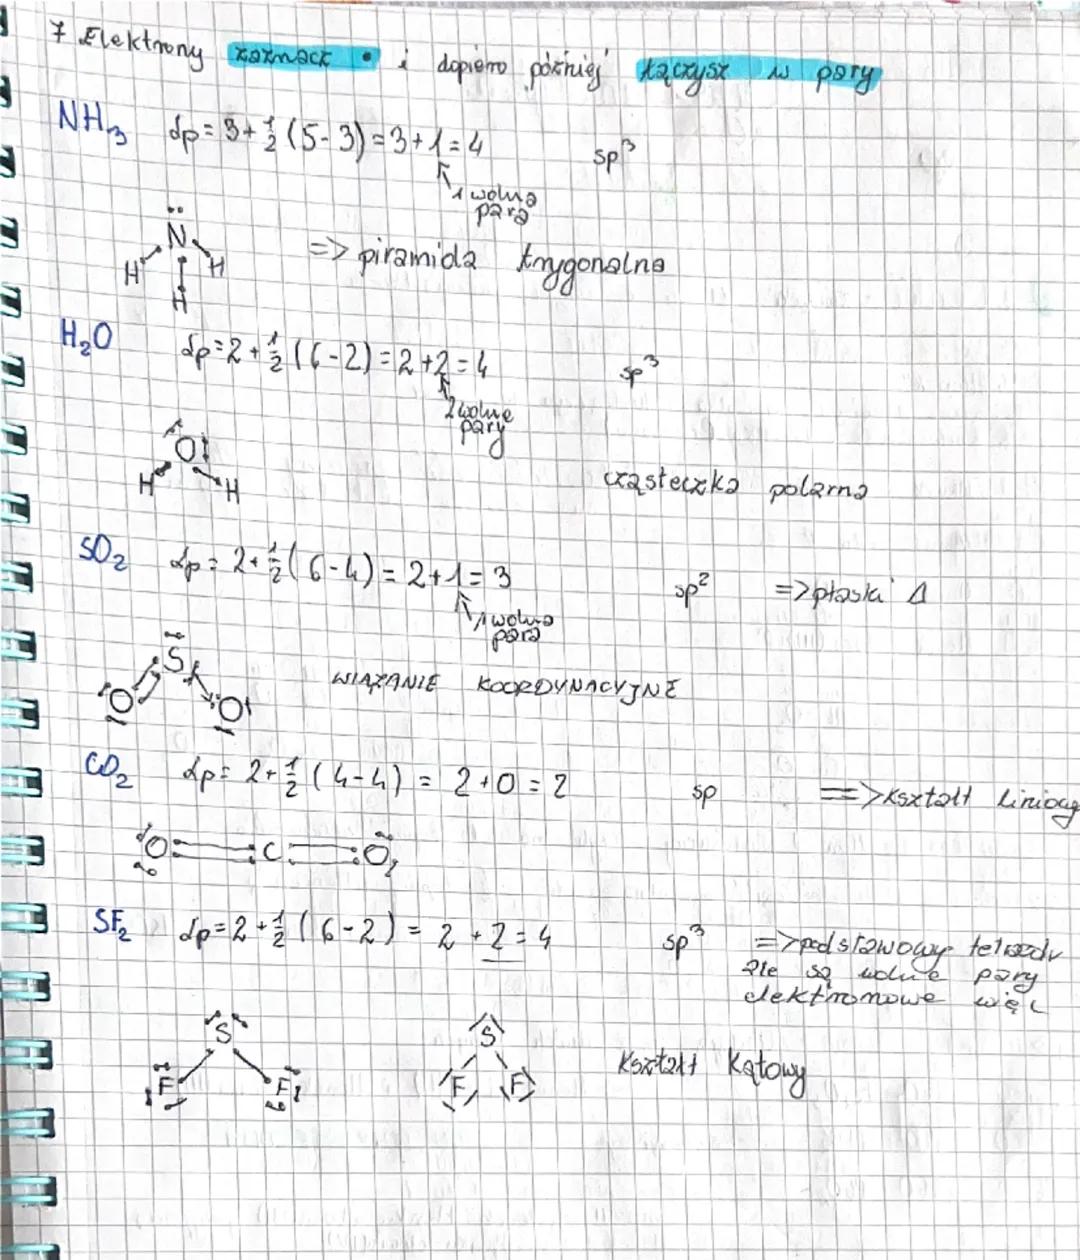 7 Elektrony zaznacz • i dopiero później łączysz w pary
NH₃ Lp = 3 + ½ (5-3) = 3 + 1 = 4 sp³
1 wolna
para
N
H H
H
=> piramida trygonalna
H₂O Lp = 2 + ½ (6-2) = 2 + 2 = 4 sp³
2 wolne
pary
O
H H
cząsteczka polarna
SO₂ Lp = 2 + ½ (6-4) = 2 + 1 = 3 sp² => płaski Δ
1 wolna
para
S
O O
WIĄZANIE KOORDYNACYJNE
CO₂ Lp = 2 + ½ (4-4) = 2 + 0 = 2 sp => kształt liniowy
O = C = O
SF₂ Lp = 2 + ½ (6-2) = 2 + 2 = 4 sp³ => podstawowy tetraedr
ale są wolne pary
elektronowe więc
S S
F F F F
kształt kątowy